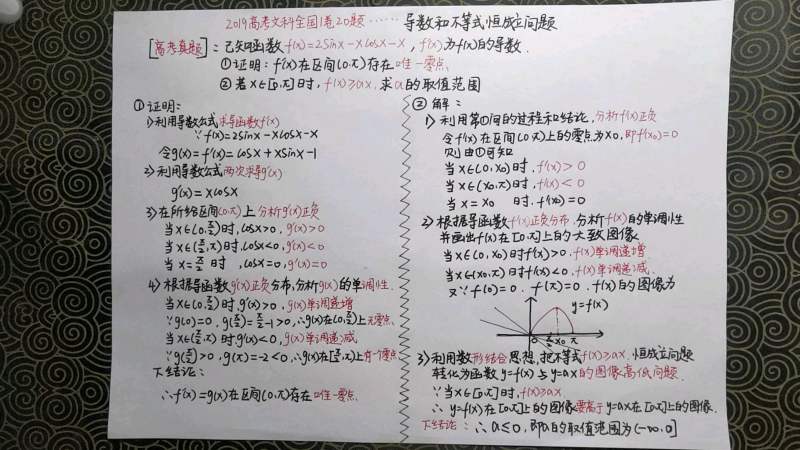 2019高考文科全国1卷20题……导数和不等式恒成立问题
[高考真题]：已知函数f(x)=2sinx-xcosx-x，f'(x)为f(x)的导数.
①证明：f'(x)在区间(0,π)存在唯一零点
②若x∈[0,π]时，f(x)≥ax，求a的取值范围
①证明：
1)利用导数公式求导函数f'(x)
∵f(x)=2sinx-xcosx-x
令g(x)=f'(x)=cosx+xsinx-1
2)利用导数公式两次求导g'(x)
g'(x)=xcosx
3)在所给区间(0,π)上分析g'(x)正负
当x∈(0,π/2)时,cosx>0,g'(x)>0
当x∈(π/2,π)时,cosx<0,g'(x)<0
当x=π/2时,cosx=0,g'(x)=0
4)根据导函数g'(x)正负分布,分析g(x)的单调性
当x∈(0,π/2)时g'(x)>0,g(x)单调递增
∵g(0)=0,g(π/2)=π/2-1>0,∴g(x)在(0,π/2)上无零点
当x∈(π/2,π)时g'(x)<0,g(x)单调递减
∵g(π/2)>0,g(π)=-2<0,∴g(x)在[π/2,π)上有一个零点
下结论：
∴f'(x)=g(x)在区间(0,π)存在唯一零点.
②解：
1)利用第①问的过程和结论,分析f'(x)正负
令f'(x)在区间(0,π)上的零点为x0,即f'(x0)=0
则由①可知
当x∈(0,x0)时,f'(x)>0
当x∈(x0,π)时,f'(x)<0
当x=x0时,f'(x0)=0
2)根据导函数f'(x)正负分布,分析f(x)的单调性
并画出f(x)在[0,π]上的大致图像
当x∈(0,x0)时f'(x)>0,f(x)单调递增
当x∈(x0,π)时f'(x)<0,f(x)单调递减.
又∵f(0)=0.f(π)=0.f(x)的图像为
y=f(x)
0 π/2 x0 π
3)利用数形结合思想,把不等式f(x)≥ax,恒成立问题
转化为函数y=f(x)与y=ax的图像高低问题.
∵当x∈[0,π]时,f(x)≥ax
∴y=f(x)在[0,π]上的图像要高于y=ax在[0,π]上的图像.
下结论：∴a≤0,即a的取值范围为(-∞,0]